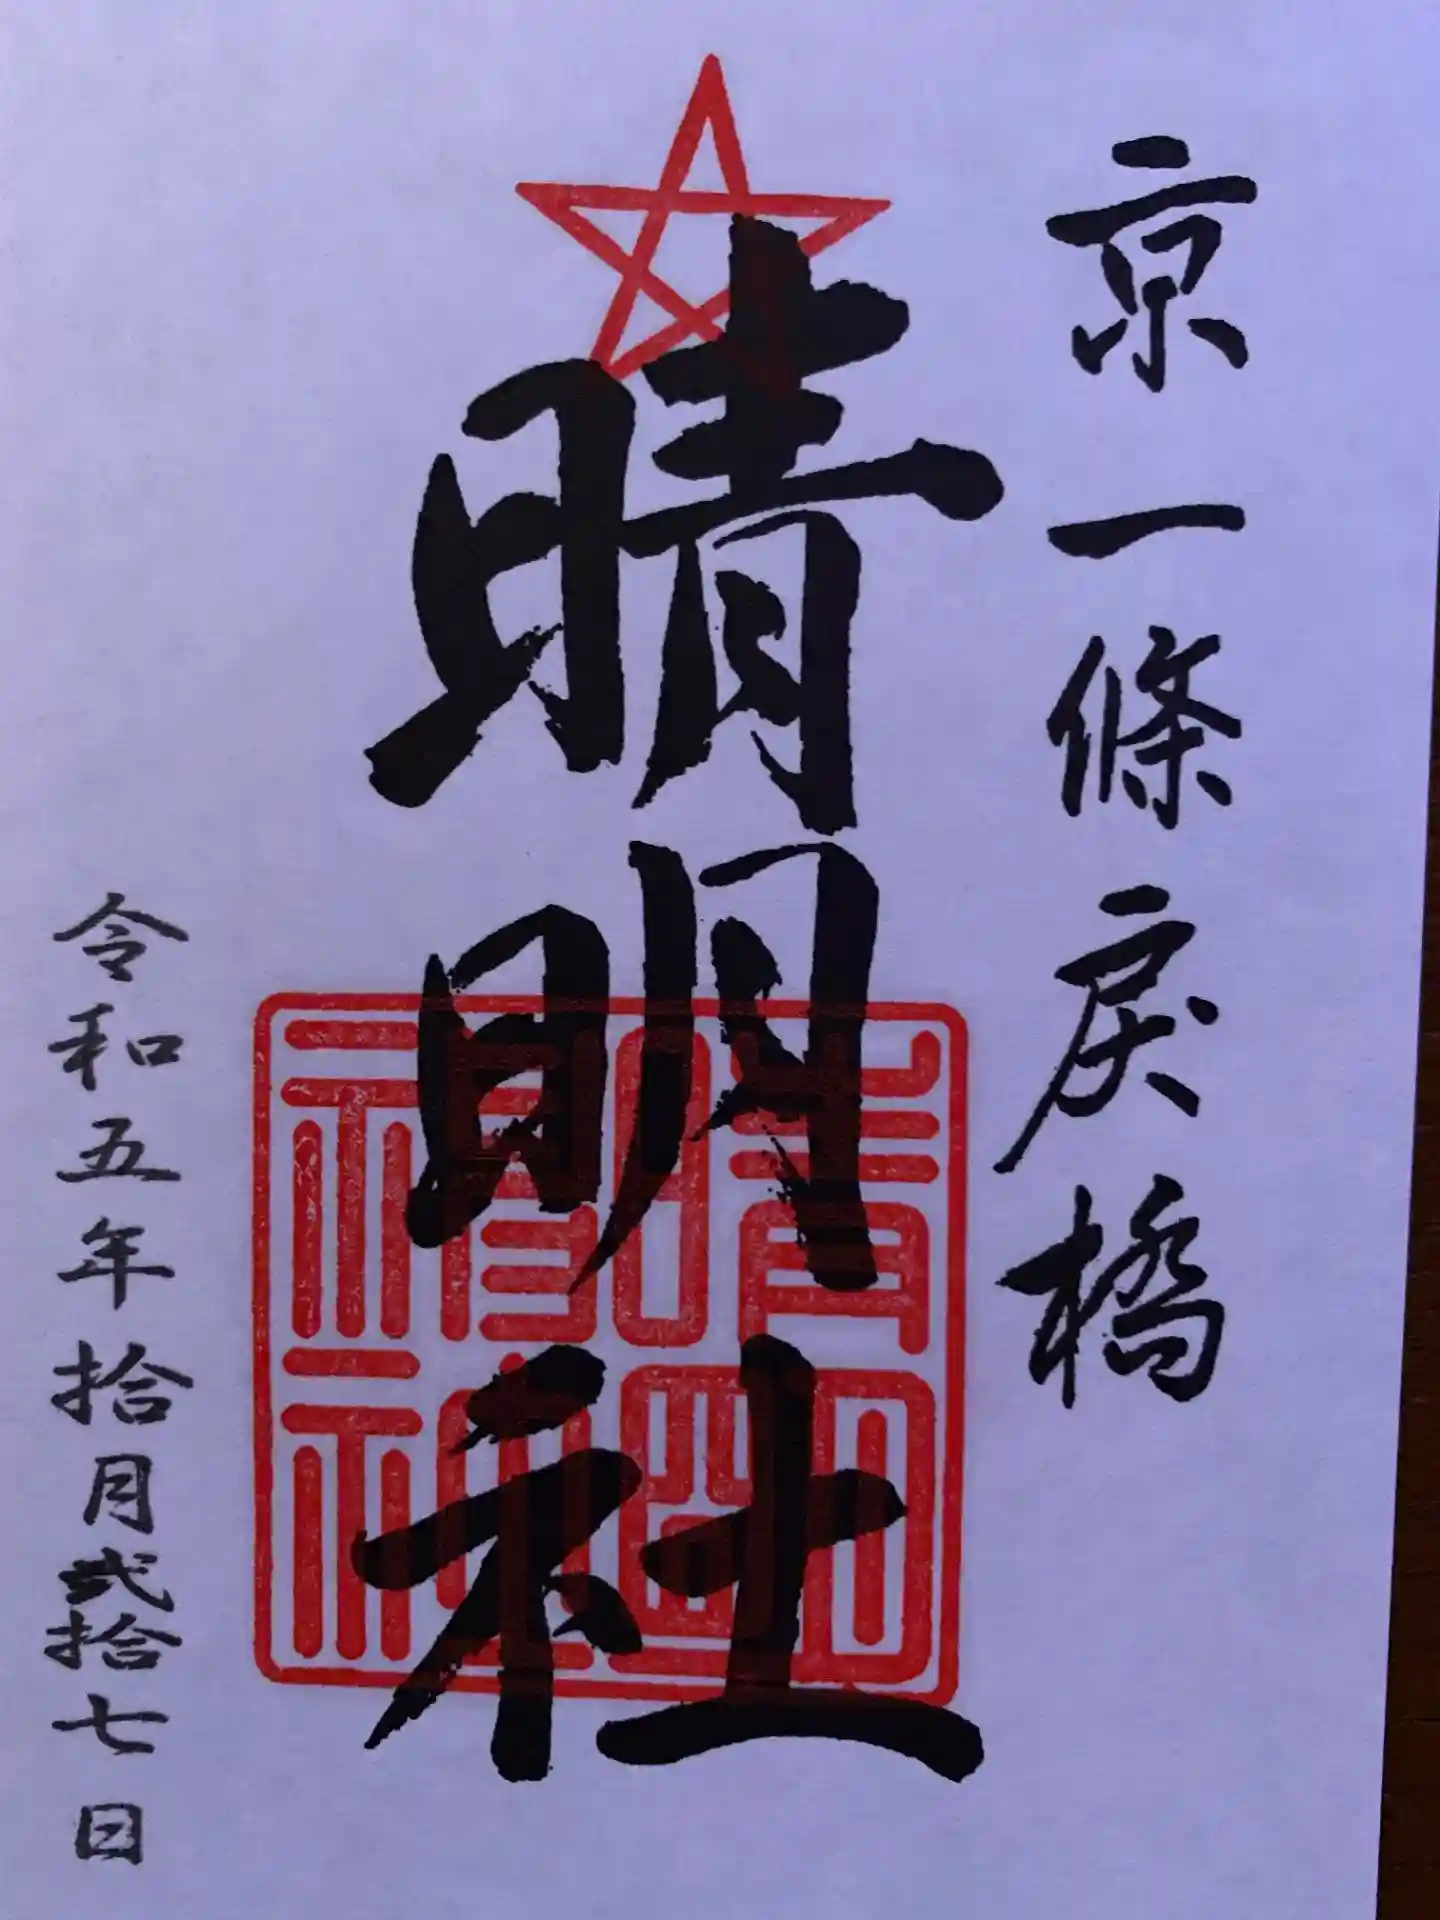 京一條戻橋
晴明社
晴明神社
令和五年拾月弐拾七日